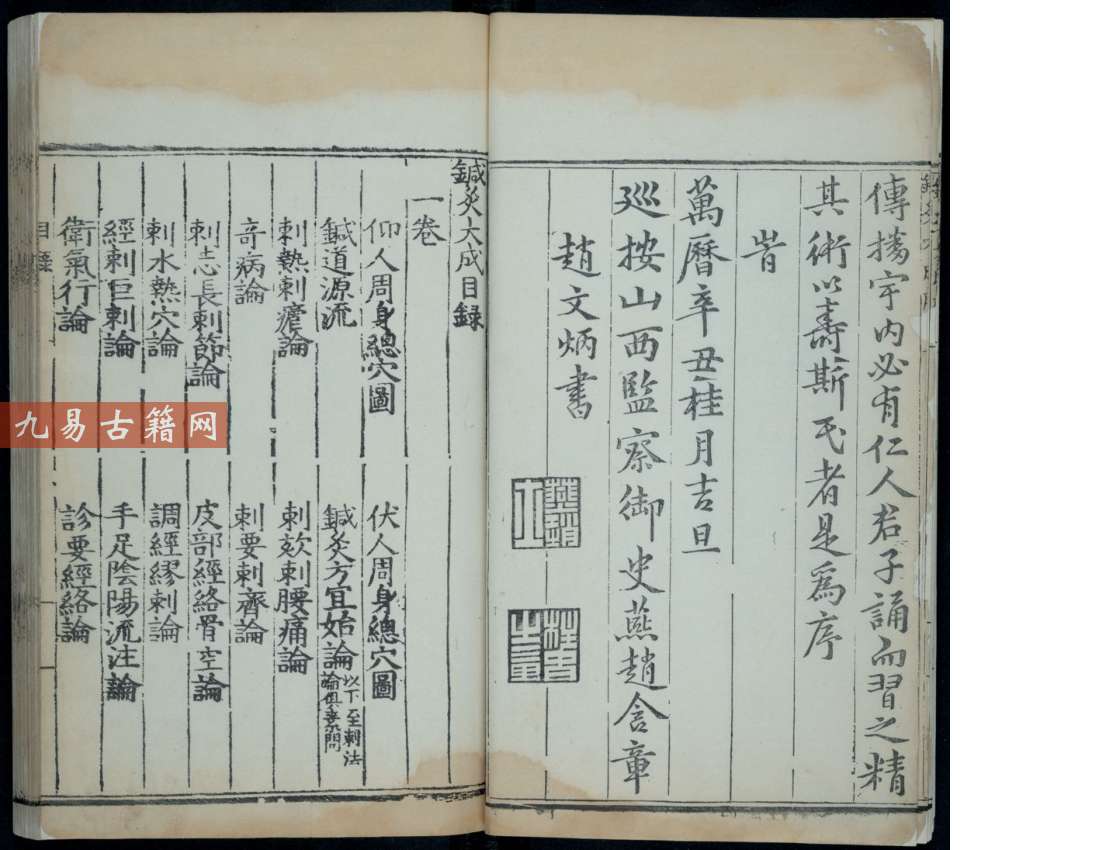 傳播宇內必有仁人君子誦而習之精
其術以壽斯民者是為序
旹
萬曆辛丑桂月吉旦
巡按山西監察御史燕趙含章
趙文炳書
鍼灸大成目錄
一卷
仰人周身總穴圖　伏人周身總穴圖
鍼道源流　鍼灸方宜始論以下至刺法論俱素問
刺熱刺瘧論　刺欬刺腰痛論
奇病論　刺要刺齊論
刺志長刺節論　皮部經絡骨空論
刺水熱穴論　調經繆刺論
經刺巨刺論　手足陰陽流注論
衛氣行論　診要經絡論
目錄
九易古籍网